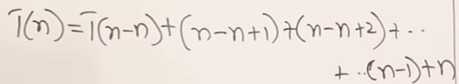 T(n) = T(n-n) + (n-n+1) + (n-n+2) + ..
+ ..(n-1) + n